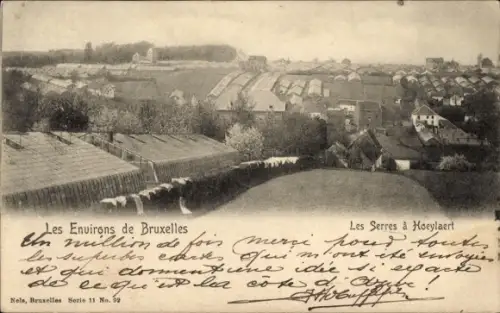 Les Environs de Bruxelles
Les Serres à Hoeylaert
Un million de fois merci pour toutes
les superbes cartes qui m'ont été envoyées
et qui donnent une idée si exacte
de ce qu'est la côte d'azur!
Nels, Bruxelles Serie 11 No. 39